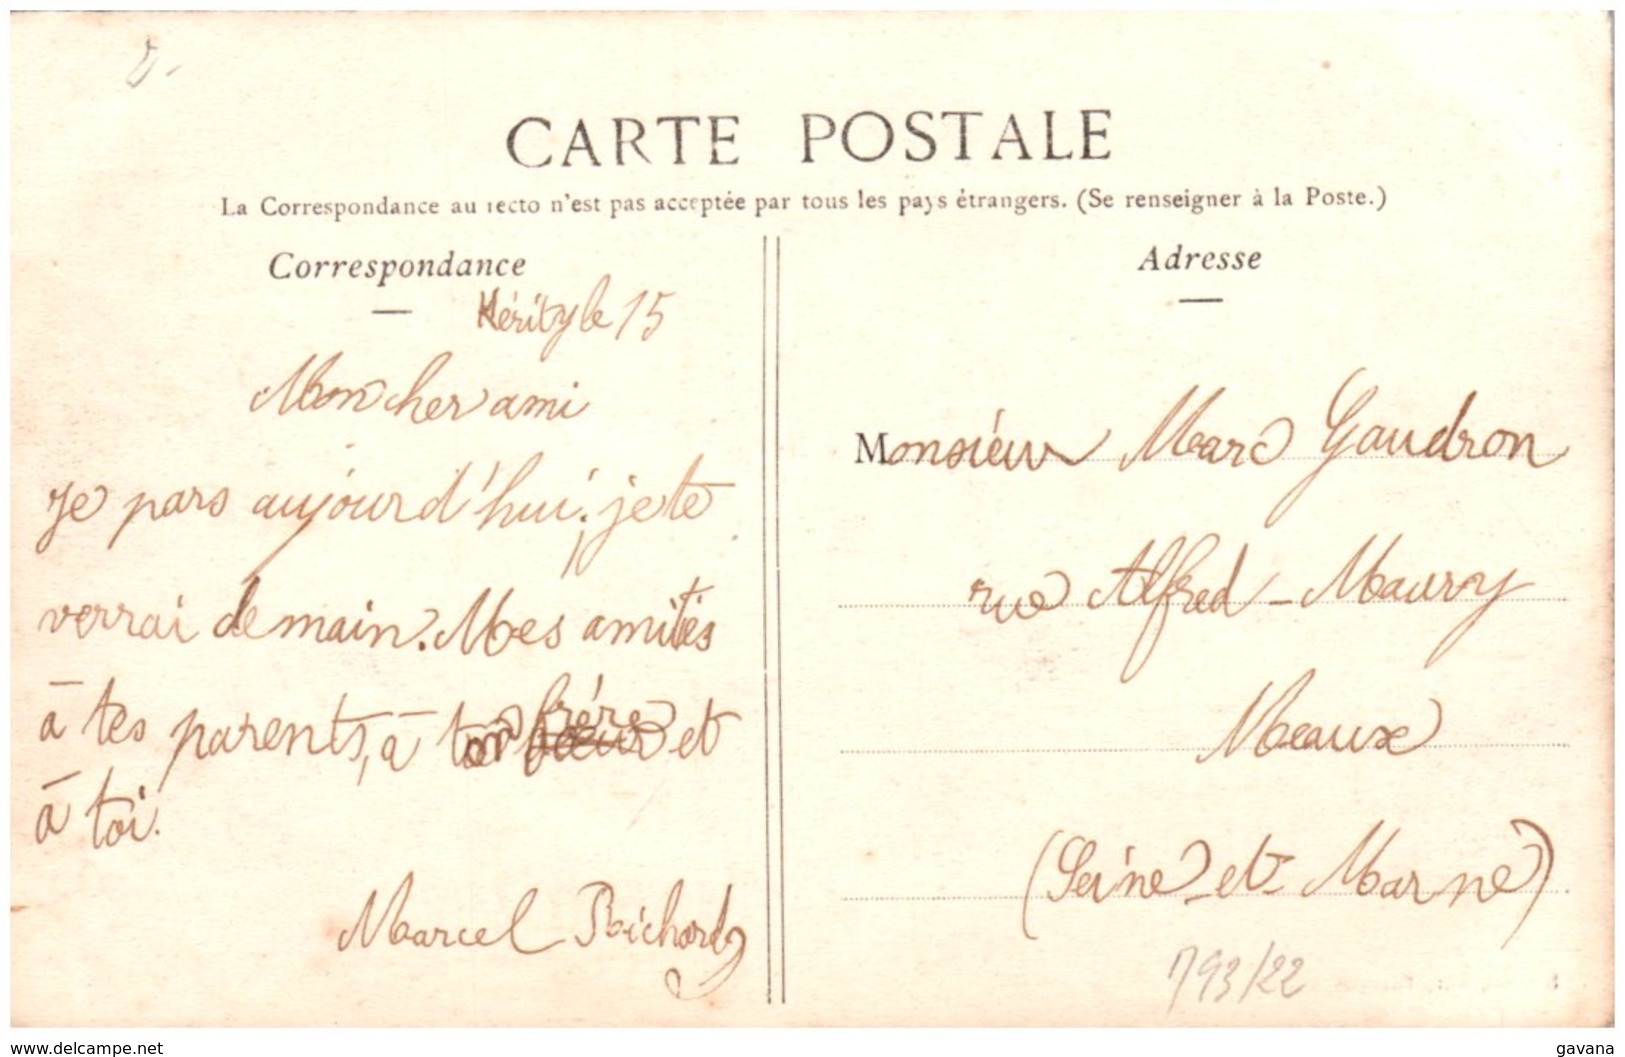 CARTE POSTALE
La Correspondance au recto n'est pas acceptée par tous les pays étrangers. (Se renseigner à la Poste.)
Correspondance
Hérity le 15
Mon cher ami
Je pars aujourd'hui; je te
verrai demain. Mes amitiés
à tes parents, à ton frère et
à toi.
Marcel Richard
Adresse
Monsieur Marc Gaudron
rue Alfred-Maury
Meaux
(Seine-et-Marne)
793/22
www.delcampe.net
gavana